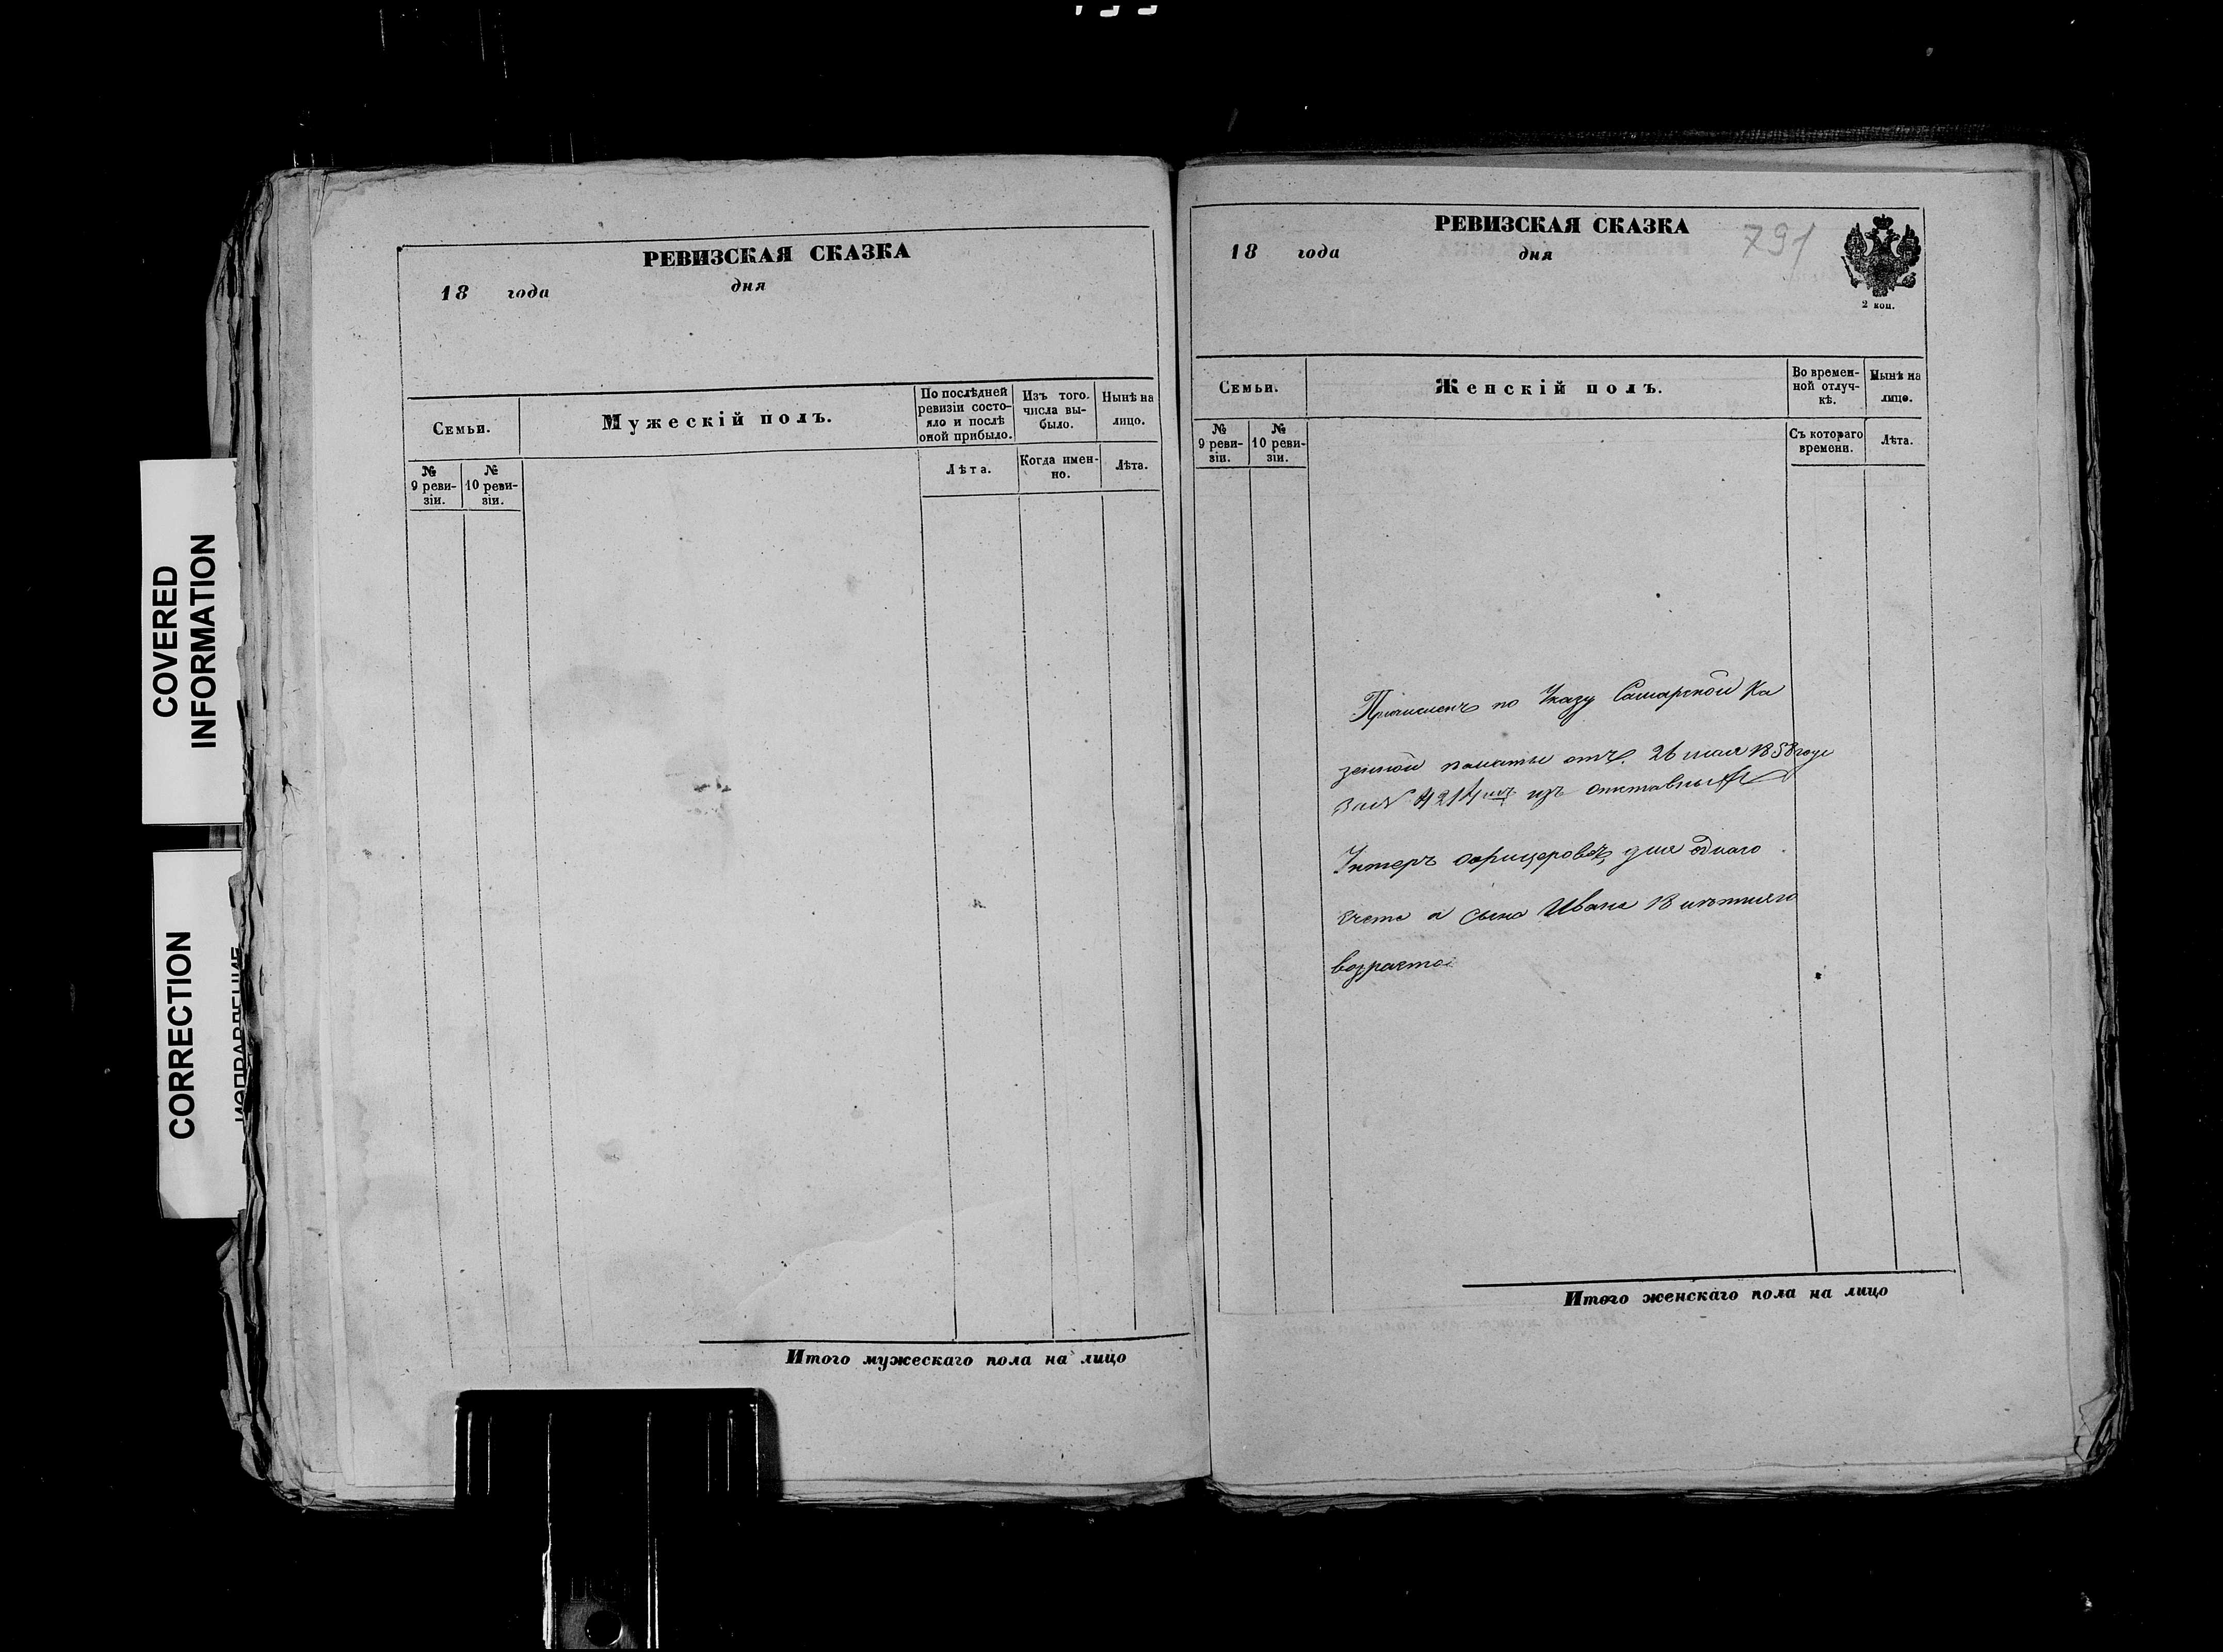 COVERED
INFORMATION
CORRECTION
ИСПРАВЛЕНИЕ
РЕВИЗСКАЯ СКАЗКА
18 года дня
Семьи.
Мужескій полъ.
По послѣдней
ревизіи состо-
яло и послѣ
оной прибыло.
Изъ того
числа вы-
было.
Нынѣ на
лицо.
№
9 реви-
зіи.
№
10 реви-
зіи.
Лѣта.
Когда имен-
но.
Лѣта.
Итого мужескаго пола на лицо
РЕВИЗСКАЯ СКАЗКА
791
18 года дня
2 коп.
Семьи.
Женскій полъ.
Во времен-
ной отлуч-
кѣ.
Нынѣ на
лицо.
№
9 реви-
зіи.
№
10 реви-
зіи.
Съ котораго
времени.
Лѣта.
Причисленъ по Указу Самарской Ка
зенной палаты отъ 26 мая 1858 года
за № 4214 изъ отставныхъ
Унтеръ офицеровъ для однаго
счета а сына Ивана 18 лѣтняго
возраста
Итого женскаго пола на лицо